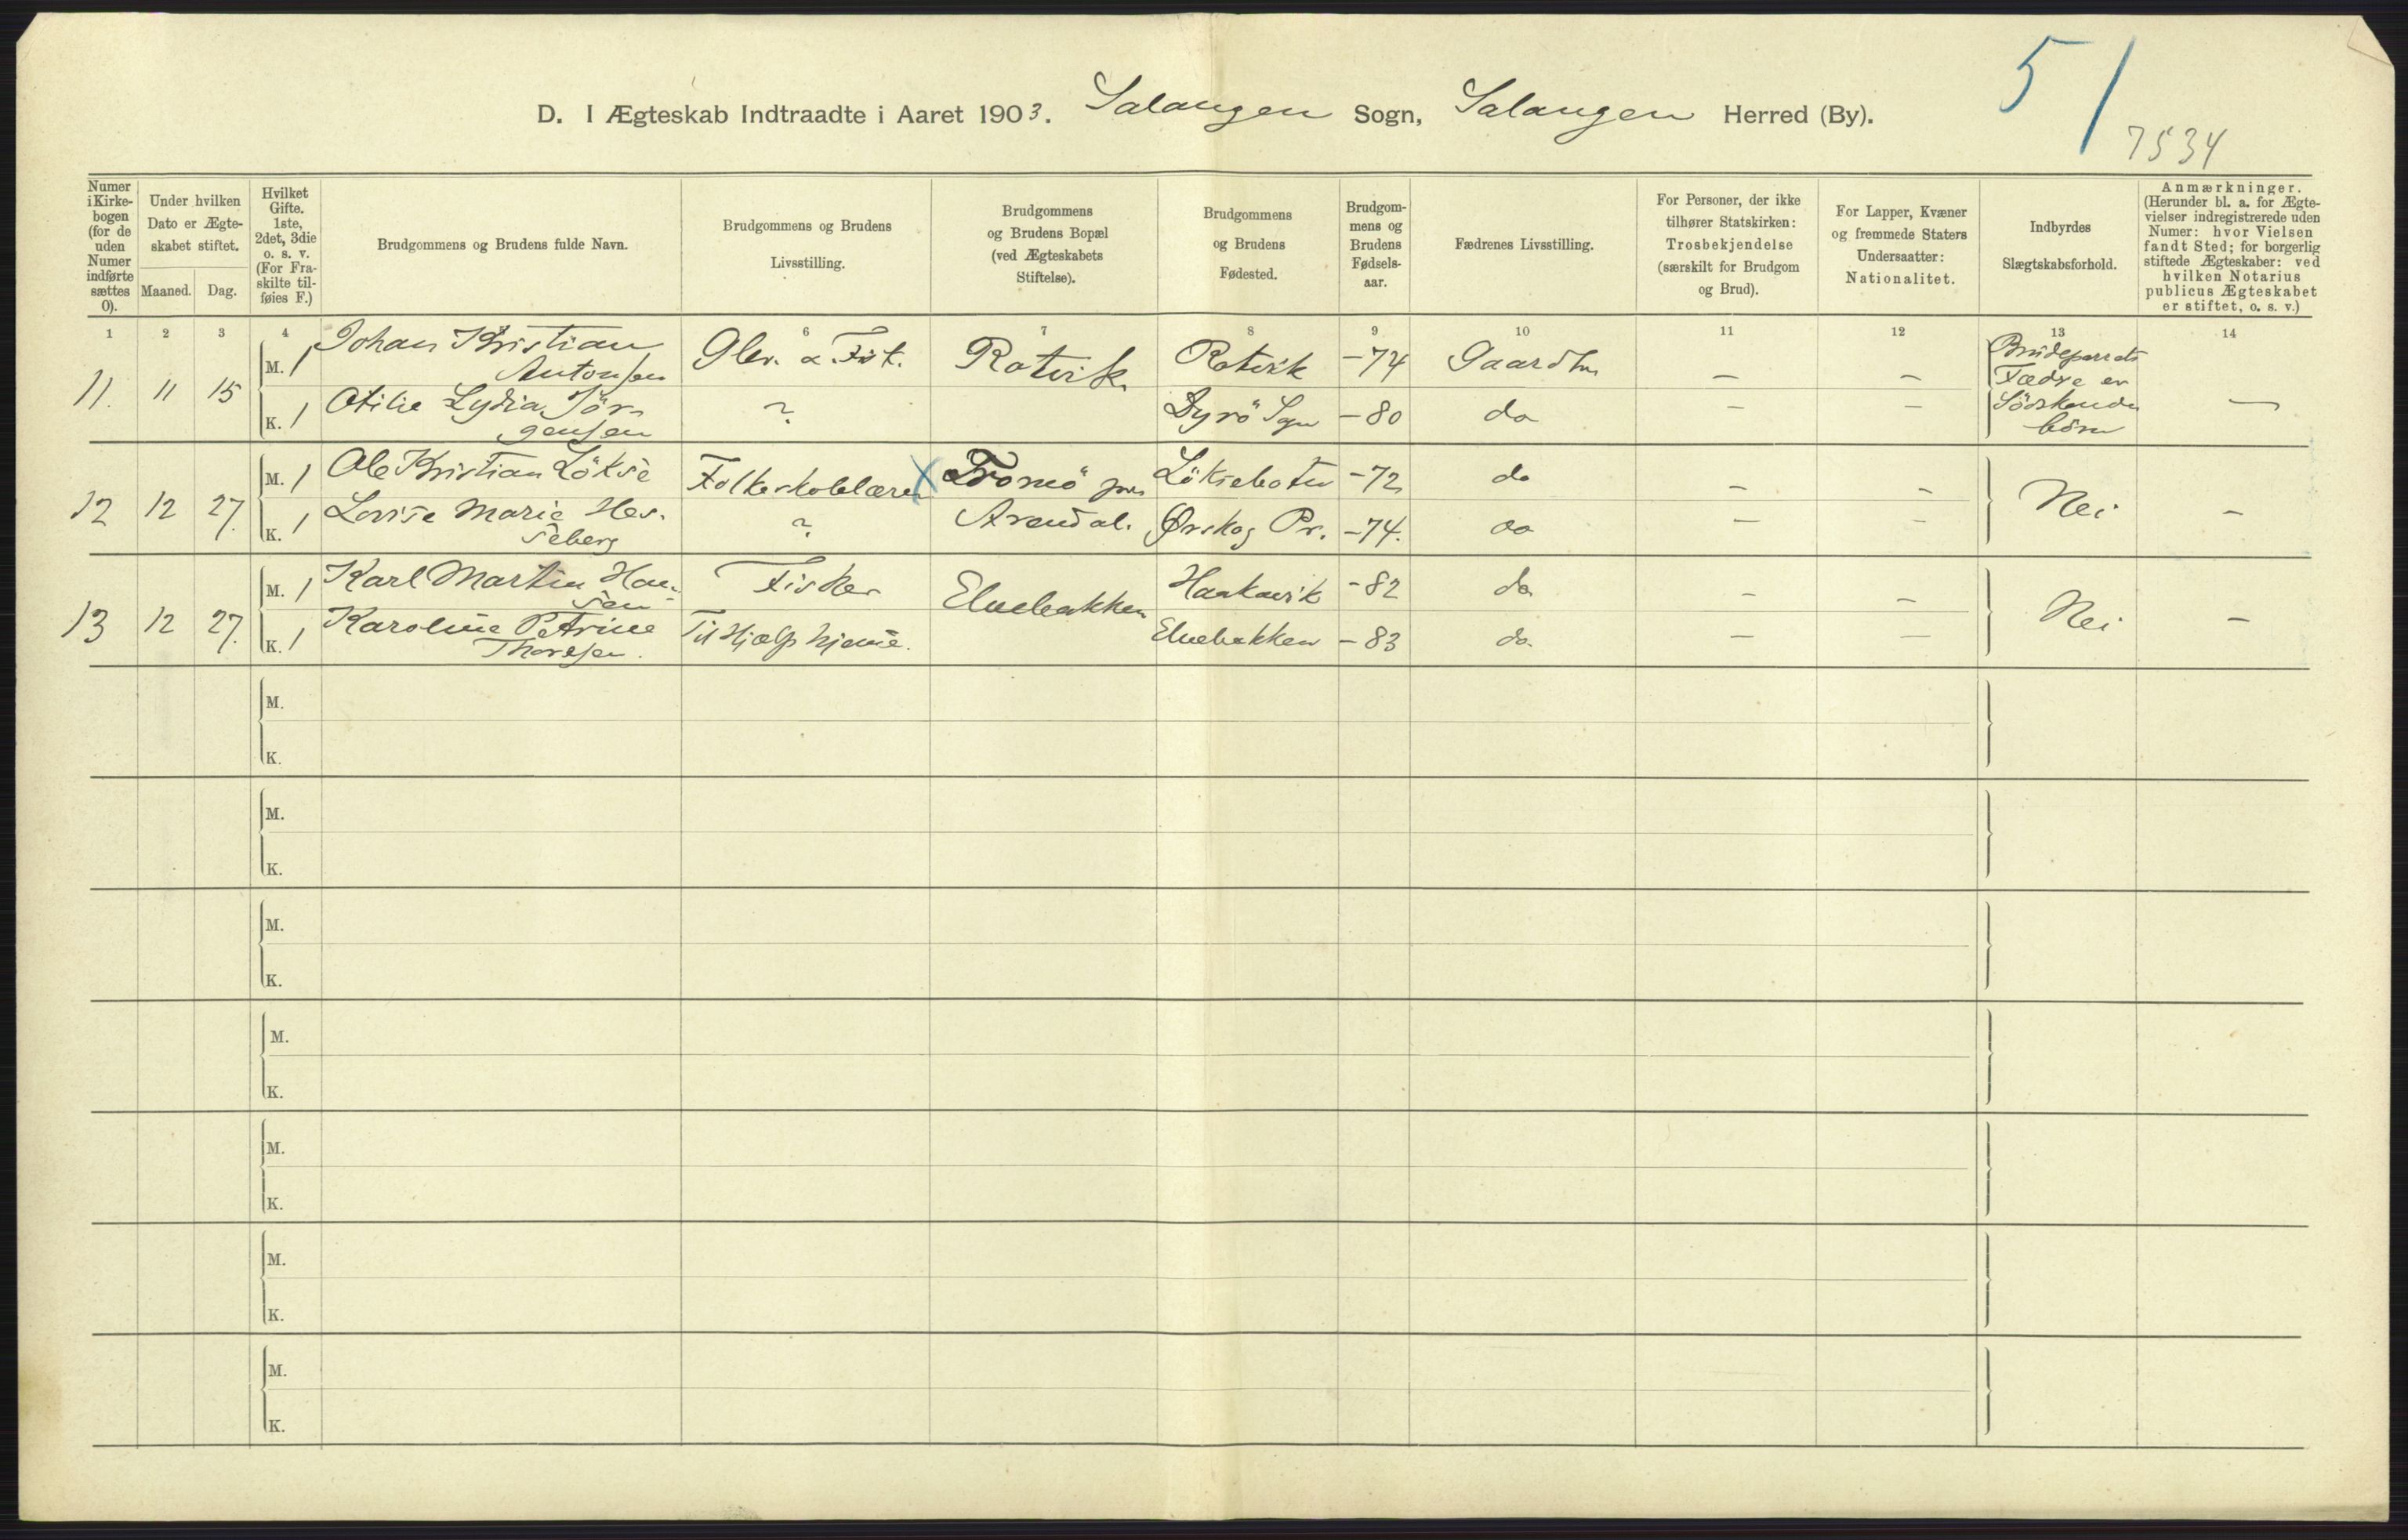 51
7534
D. I Ægteskab Indtraadte i Aaret 1903. Salangen Sogn, Salangen Herred (By).
Numer i Kirkebogen (for de uden Numer indførte sættes 0).
Under hvilken Dato er Ægteskabet stiftet.
Maaned. Dag.
Hvilket Gifte. 1ste, 2det, 3die o. s. v. (For Fraskilte tilføies F.)
Brudgommens og Brudens fulde Navn.
Brudgommens og Brudens Livsstilling.
Brudgommens og Brudens Bopæl (ved Ægteskabets Stiftelse).
Brudgommens og Brudens Fødested.
Brudgommens og Brudens Fødselsaar.
Fædrenes Livsstilling.
For Personer, der ikke tilhører Statskirken: Trosbekjendelse (særskilt for Brudgom og Brud).
For Lapper, Kvæner og fremmede Staters Undersaatter: Nationalitet.
Indbyrdes Slægtskabsforhold.
Anmærkninger. (Herunder bl. a. for Ægtevielser indregistrerede uden Numer: hvor Vielsen fandt Sted; for borgerlig stiftede Ægteskaber: ved hvilken Notarius publicus Ægteskabet er stiftet, o. s. v.)
1 2 3 4 6 7 8 9 10 11 12 13 14
11. 11 15
M. 1 Johan Kristian Antonsen Rotvik Rotvik -74 Gaardbr. — —
K. 1 Otilie Lydia Jörgensen ? Dyrö Sogn -80 do — —
Brudeparrets
Fædre er
Södskende
börn
—
12 12 27.
M. 1 Ole Kristian Lökse Folkeskolelærer X Tromö pr. Löksebotn -72 do — —
K. 1 Lovise Marie Hesseberg ? Arendal. Ørskog Pr. -74. do — —
Nei —
13 12 27.
M. 1 Karl Martin Hansen Fisker Elvebakken Haakavik -82 do — —
K. 1 Karoline Petrine Thoresen. Til Hjælp hjemme. Elvebakken -83 do. — —
Nei —
M.
K.
M.
K.
M.
K.
M.
K.
M.
K.
M.
K.
M.
K.